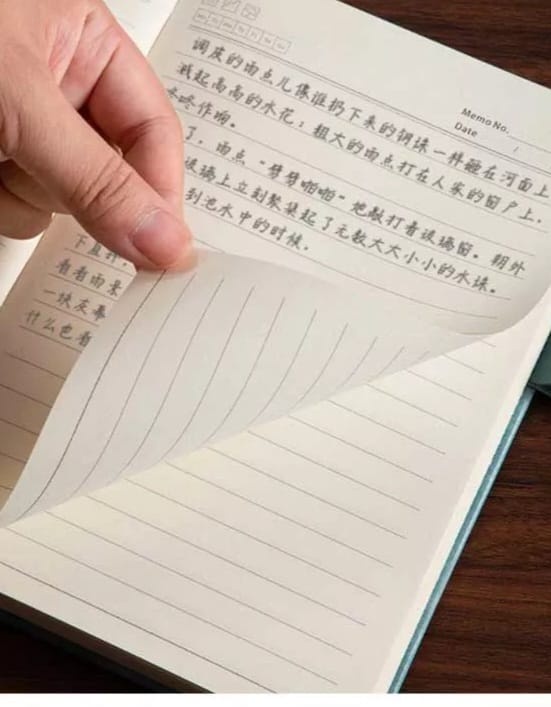 Memo No.
Date /
调皮的雨点儿像谁扔下来的钢珠一样砸在河面上
溅起高高的水花；粗大的雨点打在人家的窗户上，
咚咚作响。
了，雨点“劈劈啪啪”地敲打着玻璃窗。朝外
玻璃上立刻聚集起了无数大大小小的水珠。
到池水中的时候，
下直
看着雨景
一块灰幕
什么也看